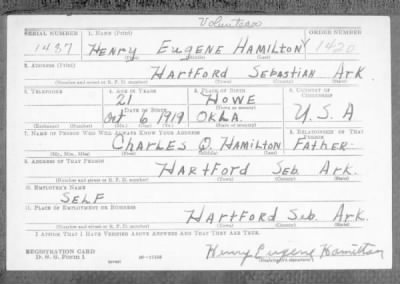 Volunteer
SERIAL NUMBER 1. NAME (Print) ORDER NUMBER
1437 HENRY EUGENE HAMILTON 1420
2. ADDRESS (Print)
HARTFORD SEBASTIAN ARK.
(Number and street or R. F. D. number) (Town) (County) (State)
3. TELEPHONE 4. AGE IN YEARS 5. PLACE OF BIRTH 6. COUNTRY OF CITIZENSHIP
21 HOWE
DATE OF BIRTH (Town or county)
Oct 6 1919 OKLA. U.S.A
(Exchange) (Number) (Mo.) (Day) (Yr.) (State or country)
7. NAME OF PERSON WHO WILL ALWAYS KNOW YOUR ADDRESS 8. RELATIONSHIP OF THAT PERSON
CHARLES HAMILTON FATHER
(Mr., Mrs., Miss) (First) (Middle) (Last)
9. ADDRESS OF THAT PERSON
HARTFORD SEB. ARK.
(Number and street or R. F. D. number) (Town) (County) (State)
10. EMPLOYER'S NAME
SELF
11. PLACE OF EMPLOYMENT OR BUSINESS
HARTFORD SEB. ARK.
(Number and street or R. F. D. number) (Town) (County) (State)
I AFFIRM THAT I HAVE VERIFIED ABOVE ANSWERS AND THAT THEY ARE TRUE.
REGISTRATION CARD
D. S. S. Form 1 Henry Eugene Hamilton
(Registrant's signature)